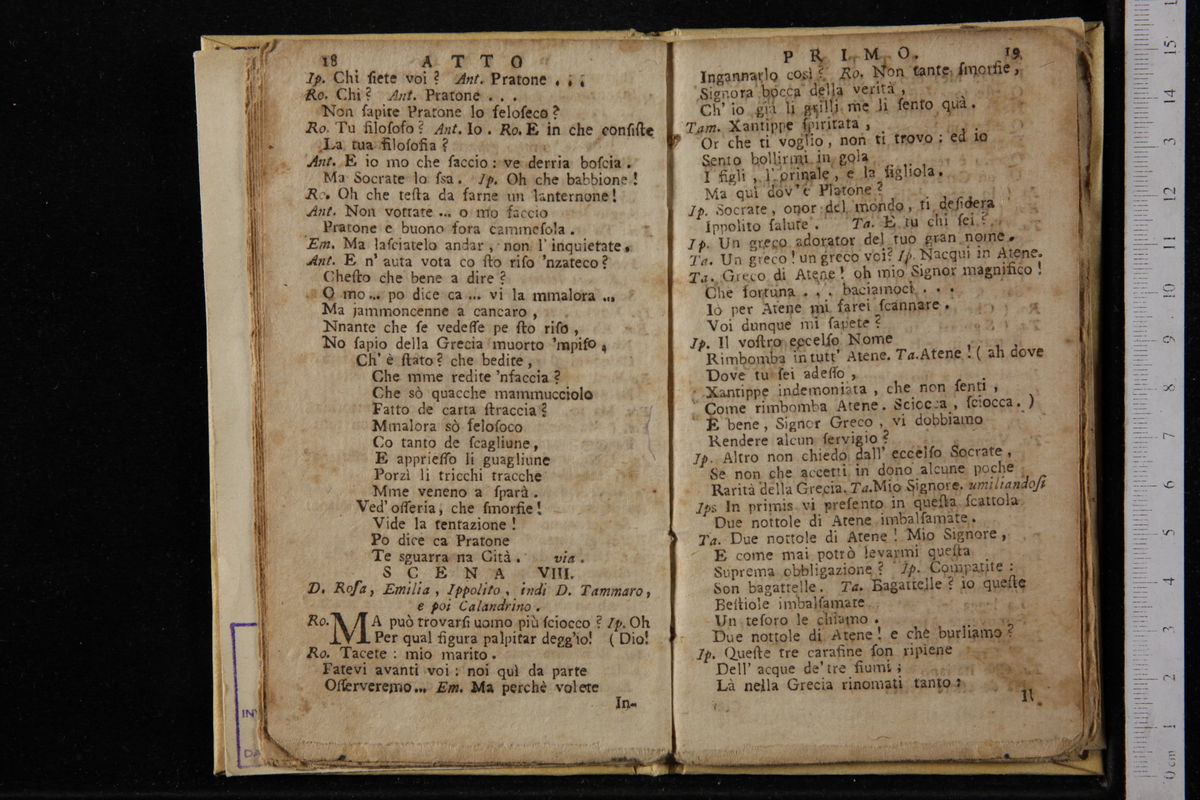 18 ATTO
Ip. Chi ſiete voi? Ant. Pratone . . .
Ro. Chi? Ant. Pratone . . .
Non ſapite Pratone lo feloſeco?
Ro. Tu filoſofo? Ant. Io. Ro. E in che conſiſte
La tua filoſofia?
Ant. E io mo che ſaccio: ve derria boſcia.
Ma Socrate lo ſsa. Ip. Oh che babbione!
Ro. Oh che teſta da farne un lanternone!
Ant. Non vottate ... o mo ſaccio
Pratone e buono fora cammeſola.
Em. Ma laſciatelo andar, non l'inquietate.
Ant. E n'auta vota co ſto riſo 'nzateco?
Cheſto che bene a dire?
O mo ... po dice ca ... vi la mmalora ...
Ma jammoncenne a cancaro,
Nnante che ſe vedeſſe pe ſto riſo,
No ſapio della Grecia muorto 'mpiſo,
Ch'è ſtato? che bedite,
Che mme redite 'nfaccia?
Che sò quacche mammucciolo
Fatto de carta ſtraccia?
Mmalora sò feloſoco
Co tanto de ſcagliune,
E apprieſſo li guagliune
Porzì li tricchi tracche
Mme veneno a ſparà.
Ved' oſſeria, che ſmorfie!
Vide la tentazione!
Po dice ca Pratone
Te sguarra na Cità. via.
SCENA VIII.
D. Roſa, Emilia, Ippolito, indi D. Tammaro,
e poi Calandrino.
Ro. MA può trovarſi uomo più ſciocco? Ip. Oh
Per qual figura palpitar degg'io! (Dio!
Ro. Tacete: mio marito.
Fatevi avanti voi: noi quì da parte
Oſſerveremo... Em. Ma perchè volete
In-
PRIMO. 19
Ingannarlo così? Ro. Non tante ſmorfie,
Signora bocca della verità,
Ch'io già li grilli me li ſento quà.
Tam. Xantippe ſpiritata,
Or che ti voglio, non ti trovo: ed io
Sento bollirmi in gola
I figli, l'orinale, e la figliola.
Ma quì dov'è Platone?
Ip. Socrate, onor del mondo, ti deſidera
Ippolito ſalute. Ta. E tu chi ſei?
Ip. Un greco adorator del tuo gran nome.
Ta. Un greco! un greco voi? Ip. Nacqui in Atene.
Ta. Greco di Atene! oh mio Signor magnifico!
Che fortuna . . . baciamoci . . .
Io per Atene mi farei ſcannare.
Voi dunque mi ſapete?
Ip. Il voſtro eccelſo Nome
Rimbomba in tutt' Atene. Ta. Atene! (ah dove
Dove tu ſei adeſſo,
Xantippe indemoniata, che non ſenti,
Come rimbomba Atene. Sciocca, ſciocca.)
E bene, Signor Greco, vi dobbiamo
Rendere alcun ſervigio?
Ip. Altro non chiedo dall' eccelſo Socrate,
Se non che accetti in dono alcune poche
Rarità della Grecia. Ta. Mio Signore. umiliandoſi
Ips In primis vi preſento in queſta ſcattola
Due nottole di Atene imbalſamate.
Ta. Due nottole di Atene! Mio Signore,
E come mai potrò levarmi queſta
Suprema obbligazione? Ip. Compatite:
Son bagattelle. Ta. Bagattelle? io queſte
Beſtiole imbalſamate
Un teſoro le chiamo.
Due nottole di Atene! e che burliamo?
Ip. Queſte tre carafine ſon ripiene
Dell' acque de' tre fiumi;
Là nella Grecia rinomati tanto:
Il